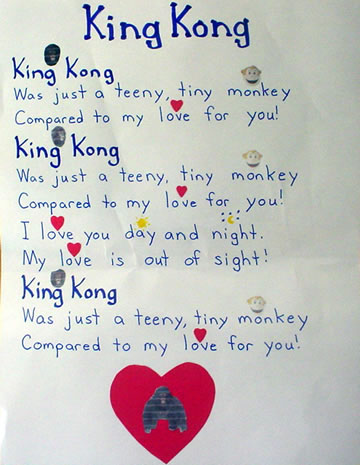 King Kong
King Kong
Was just a teeny, tiny monkey
Compared to my love for you!
King Kong
Was just a teeny, tiny monkey
Compared to my love for you!
I love you day and night.
My love is out of sight!
King Kong
Was just a teeny, tiny monkey
Compared to my love for you!